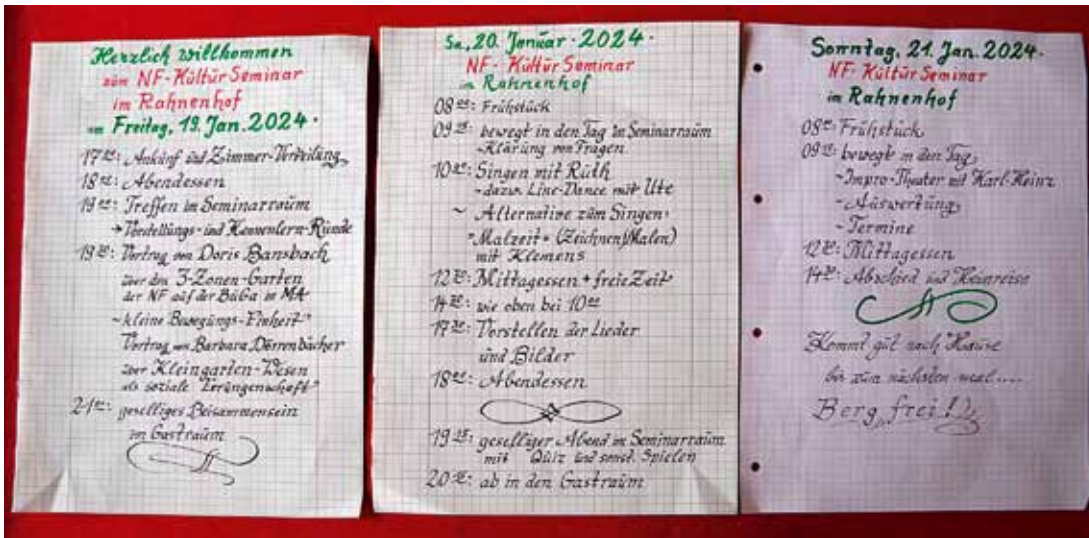 Herzlich willkommen
zum NF-Kültür Seminar
im Rahnenhof
am Freitag, 19. Jan. 2024.
17:00: Ankünf und Zimmer-Verteilung
18:00: Abendessen
19:00: Treffen im Seminarraüm
→ Vorstellüngs- und Kennenlern-Ründe
19:30: Vortrag von Doris Bansbach
über den 3-Zonen-Garten
der NF auf der BüGa in MA
~ kleine Bewegüngs-Einheit ~
Vortrag von Barbara Dörrenbächer
über Kleingarten-Wesen
als soziale Errüngenschaft
21:00: geselliges Beisammensein
im Gastraüm
Sa, 20. Januar. 2024.
NF-Kültür Seminar
im Rahnenhof
08: Frühstück
09: bewegt in den Tag im Seminarraüm
- Klärüng von Fragen
10: Singen mit Rüth
- dazw. Line-Dance mit Ute
~ Alternative züm Singen:
"Malzeit" (Zeichnen/Malen)
mit Klemens
12: Mittagessen + freie Zeit
14: wie oben bei 10
17: Vorstellen der Lieder
und Bilder
18: Abendessen
19: geselliger Abend im Seminarraüm
mit Qüiz und sonst. Spielen
20: ab in den Gastraüm
Sonntag, 21. Jan. 2024.
NF-Kültür Seminar
im Rahnenhof
08: Frühstück
09: bewegt in den Tag
- Impro-Theater mit Karl-Heinz
- Aüswertüng
- Termine
12: Mittagessen
14: Abschied und Heimreise
Kommt güt nach Haüse
bis züm nächsten mal.....
Berg frei!